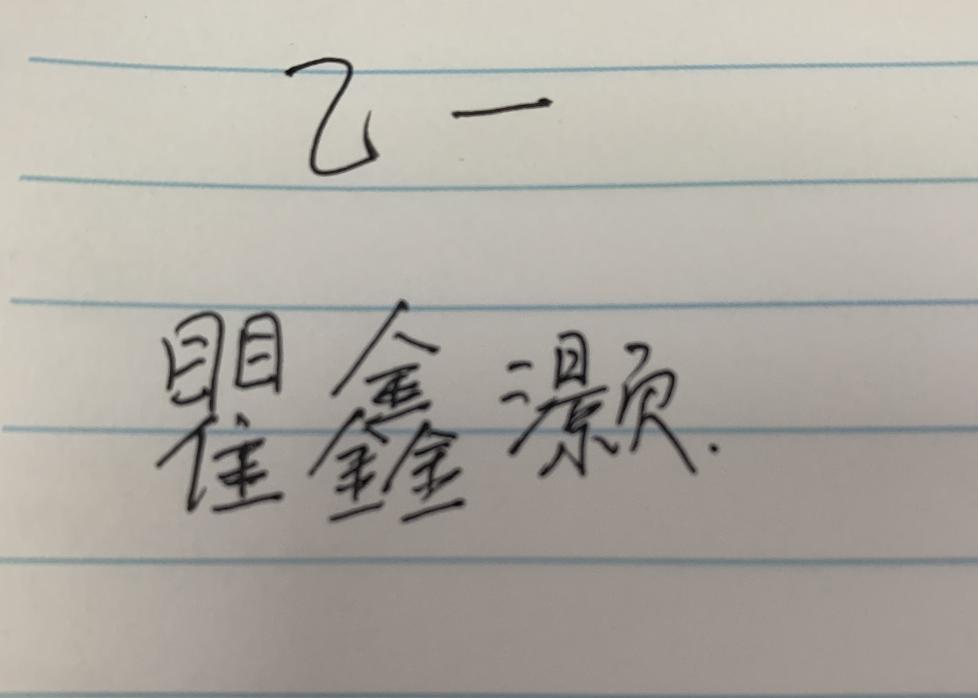 乙一
瞿鑫灏